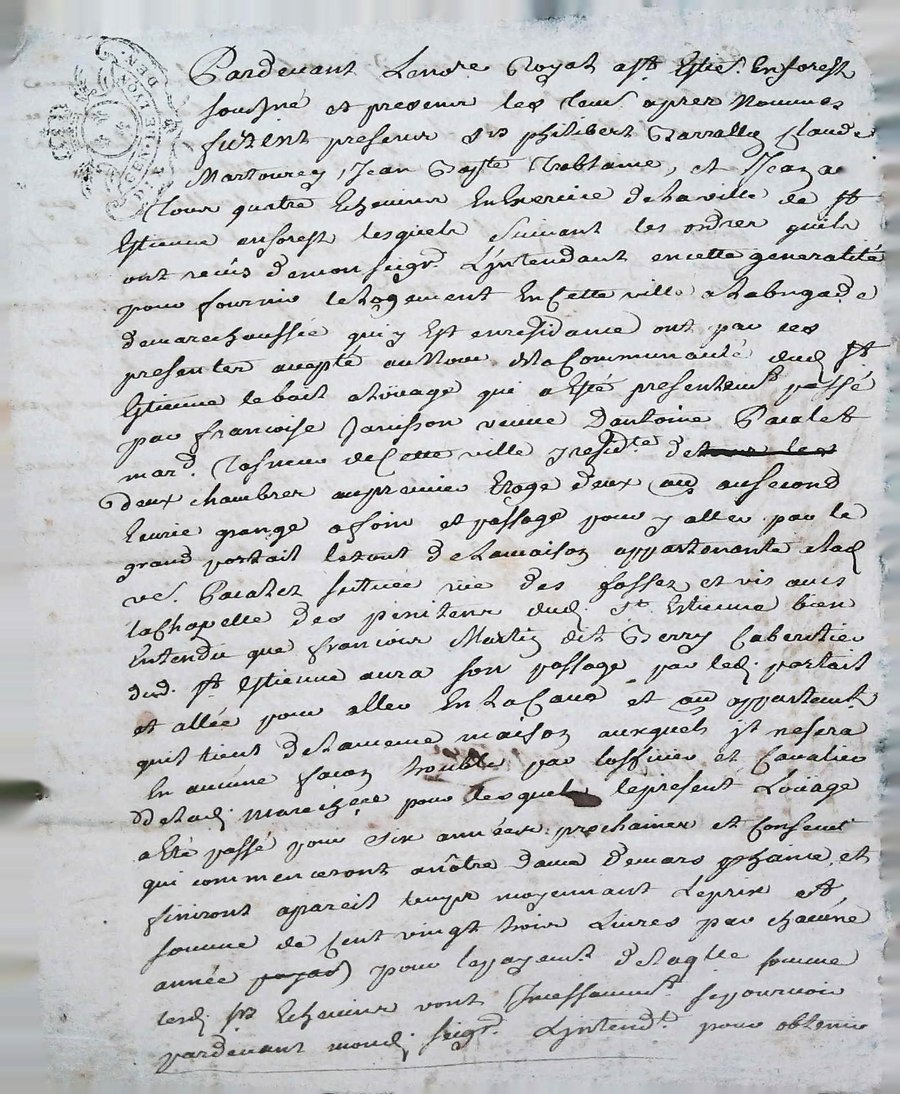 GEN. DE LION MET NOT
Pardevant Lenore Royal a st Estie. En forest
sousné et presence les temoins apres nommes
furent presens srs philibert Claude
Martourey, Jean Bapte Trablaine, et Jean
Tous quatre Echevins En Exercice de la ville de st
Estienne en forest lesquels suivant les ordres quils
ont recus de mon seigr. L'jntendant en cette generalité
pour fournir le logement En Cette ville a la brigade
de marechaussée qui y Est en residance ont par ces
presentes accepté au Nom de la Communauté dud st
Estienne le bail a loüage qui a esté presentemt passé
par francoise Janisson veuve D'antoine Pacalet
mard. de Cette ville y residte de
Deux chambres au premier Etage deux au second
Ecurie grange a foin et passage pour y aller par le
grand portail le tout de la maison appartenante a lad
ve. Pacalet scituée rüe des fossez et vis avis
la Chapelle des penitens dud. st. Estienne bien
Entendu que francois Martin dit Berry Cabaretier
dud. st Estienne aura son passage par led. portail
et allée pour aller En la Cave et au appartemt
quil tient de la meme maison auxquels il ne sera
En aucune facon troublé par l'officier et Cavaliers
de lad. marechssée pour lesquels le present Loüage
a Eté passé pour six années prochaines et Consecut
qui commenceront a nôtre dame de mars phaine, et
finiront a pareil temps moyennant Le prix et
somme de Cent vingt trois Livres par chacune
année pour le payemt de laqlle somme
lesd. srs Echevins vont Jncessamment se pourvoir
pardevant mond. seigr. L'jntendt. pour obtenir